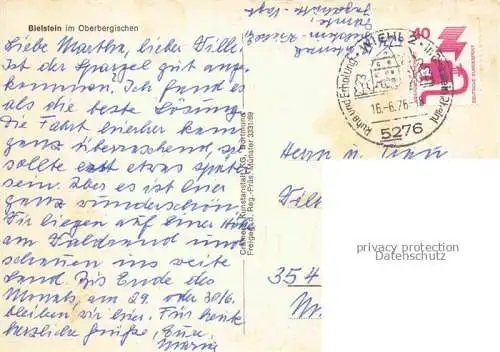 Bielstein im Oberbergischen
Liebe Martha, lieber Tilli
Ist der Spargel gut ange-
kommen. Ich fand es
als die beste Lösung
Die Fahrt hierher kam
ganz überraschend, sie
sollte etwas später
sein. Aber es ist ganz
wunderschön
Wir liegen auf einer Höhe
am Waldrand und
schauen ins weite
Land. Bis Ende des
Monats, am 29. oder 30/6.
bleiben wir hier. Für heute
herzliche Grüße, Eure
Maria
Cramers Kunstanstalt KG, Dortmund
Freigeg. d. Reg.-Präs. Münster
WIEHL 2
Ruhe und Erholung
16.-6.76
5276
40
Herrn u. Frau
354
privacy protection
Datenschutz